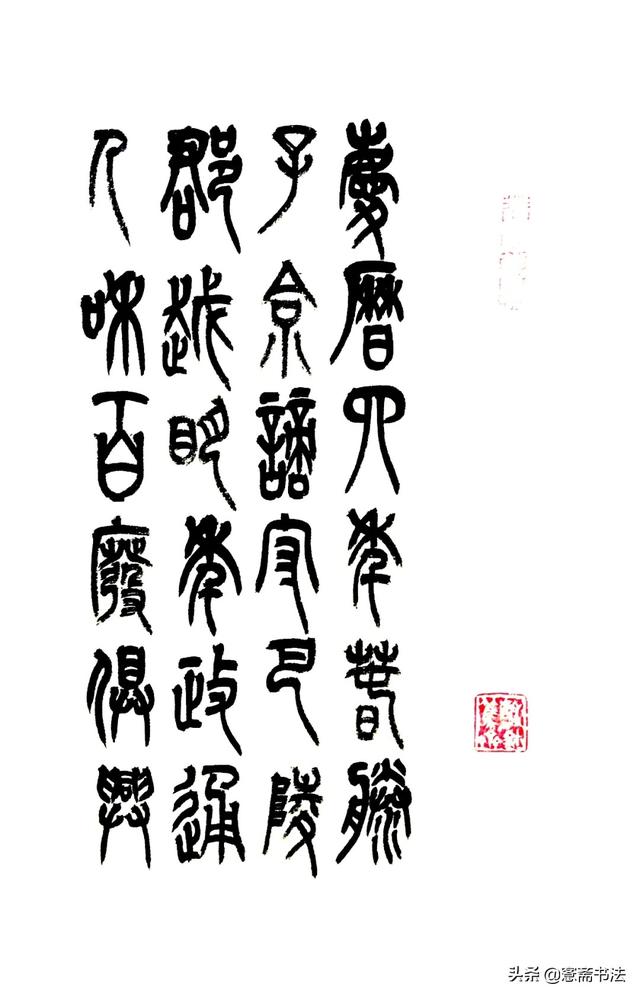 慶曆四年春滕
子京謫守巴陵
郡越明年政通
人和百廢俱興
头条 @愙斋书法